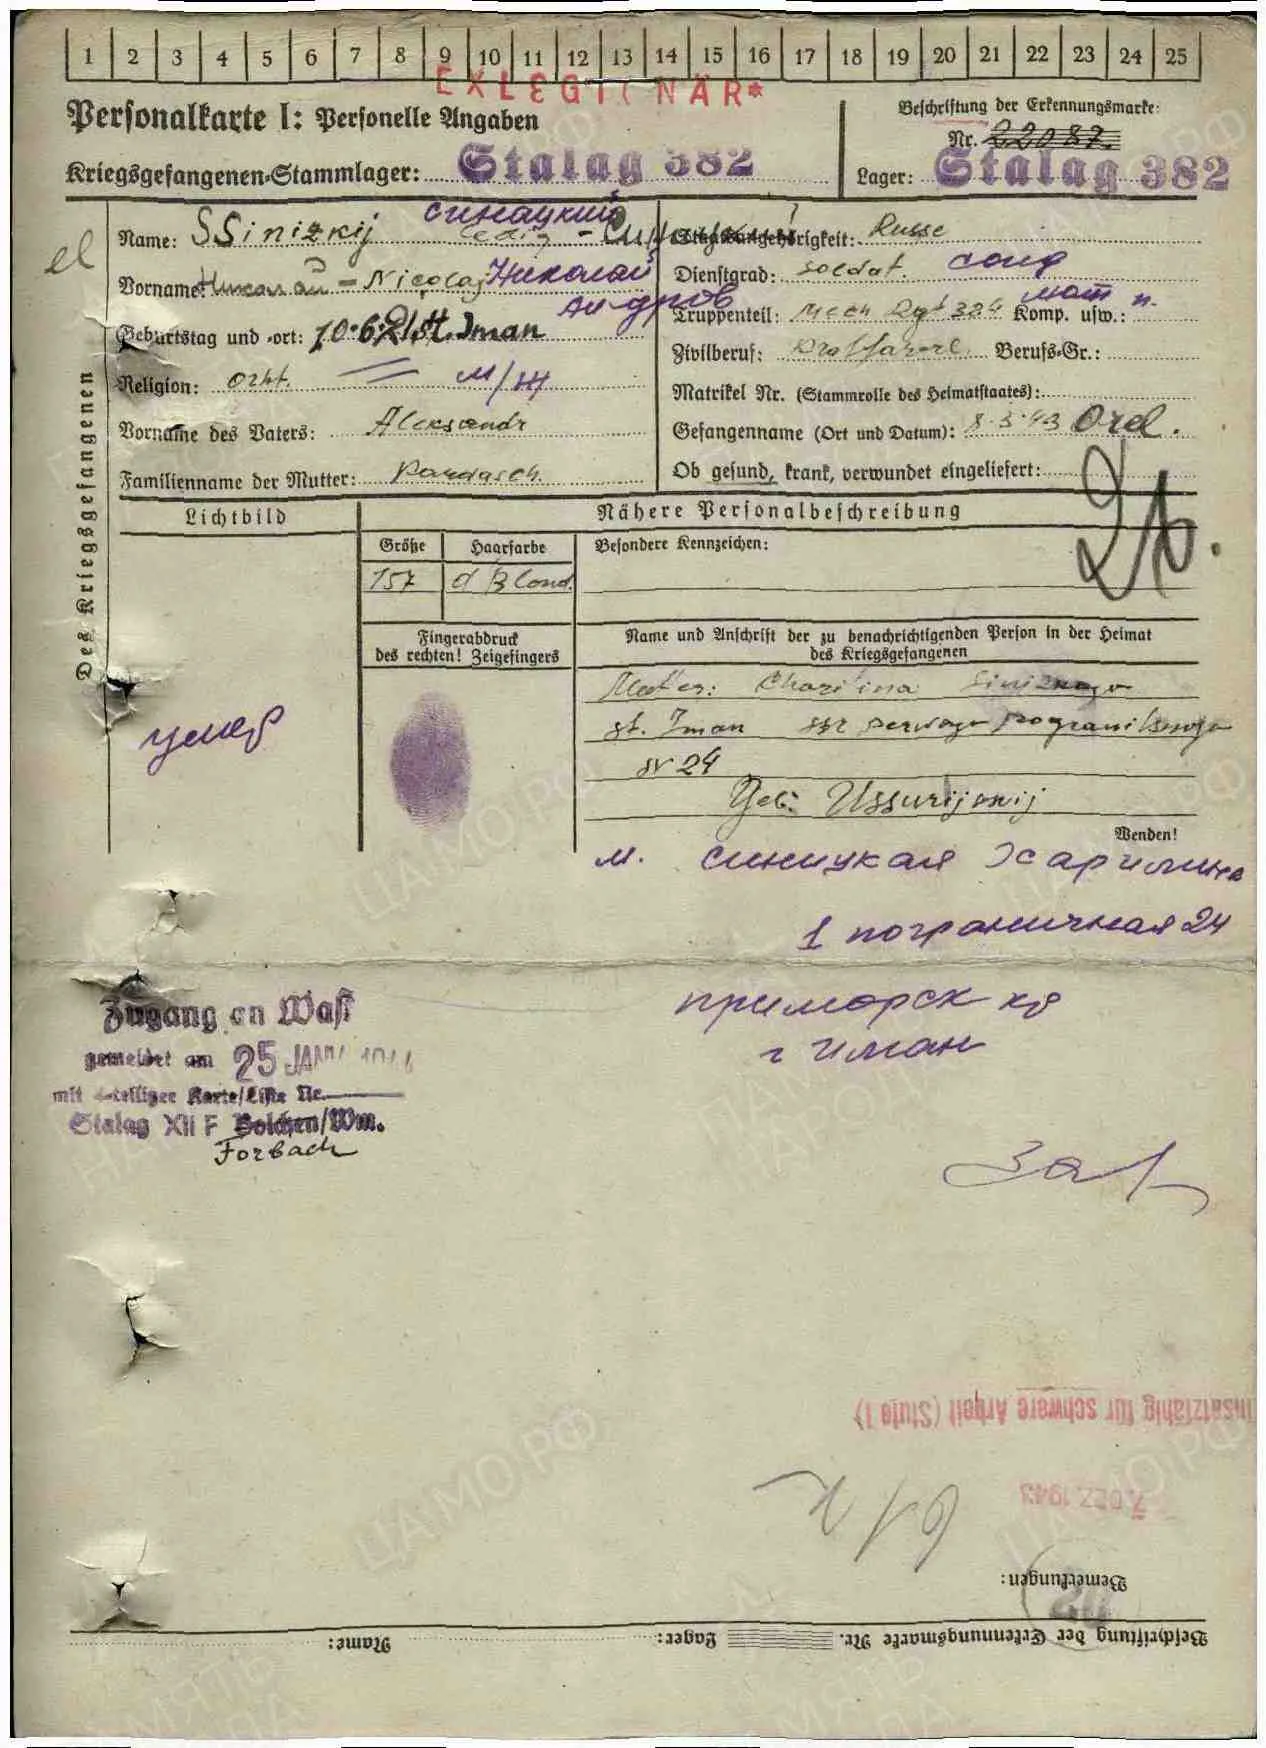 1 2 3 4 5 6 7 8 9 10 11 12 13 14 15 16 17 18 19 20 21 22 23 24 25
EXLEGIONÄR*
Personalkarte I: Personelle Angaben
Beschriftung der Erkennungsmarke:
Nr. 22087.
Kriegsgefangenen-Stammlager: Stalag 382
Lager: Stalag 382
el
Name: SSinizkij синацкий
Staatsangehörigkeit: Russe
Vorname: Nicolaj Николай
Dienstgrad: Soldat. солд
Truppenteil: Mech Rgt 324 Komp. usw.:
Geburtstag und -ort: 10.6.21 st. Iman
Zivilberuf: Beruss-Gr.:
Religion: orht.
Matrikel Nr. (Stammrolle des Heimatstaates):
Vorname des Vaters: Aleksandr
Gefangenname (Ort und Datum): 8.3.43 Orel.
Familienname der Mutter: Kardasch.
Ob gesund, krank, verwundet eingeliefert:
Des Kriegsgefangenen
Lichtbild
Nähere Personalbeschreibung
Größe Haarfarbe Besondere Kennzeichen:
157 d Blond.
Fingerabdruck
des rechten! Zeigefingers
Name und Anschrift der zu benachrichtigenden Person in der Heimat
des Kriegsgefangenen
Mutter: Charitina Sinizkago
st. Iman
умер
№ 24
Geb: Ussurijskij
Wenden!
м. синицкая Харитина
1 пограничная 24
приморск кр
г Иман
Zugang an Wast
gemeldet am 25 JAN
mit 4-teiliger Karte/Liste Nr.
Stalag XII F Bolchen/Wm.
Forbach
Einsatzfähig für schwere Arbeit (Stufe I)
7. DEZ. 1943
Bemerkungen:
Beschriftung der Erkennungsmarke Nr. Lager: Name: